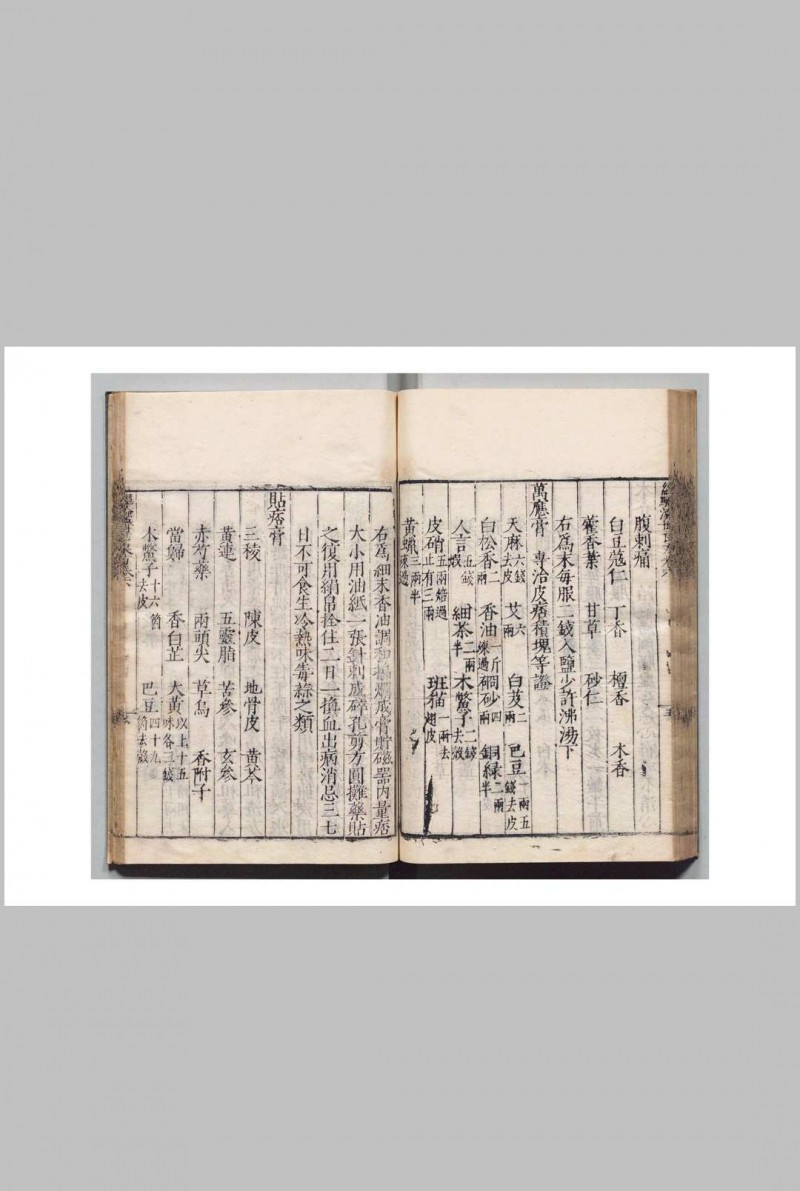 腹刺痛
白豆蔻仁 丁香 檀香 木香
藿香葉 甘草 砂仁
右為末每服二錢入鹽少許沸湯下
萬應膏 專治皮痞積塊等證
天麻六錢去皮 艾六兩 白芨二兩 巴豆一兩五錢去皮
白松香二兩 香油一斤煉過 硇砂四兩 銅緑二兩半
人言五錢煆 細茶二兩半 木鱉子二錢去殼
皮硝五兩焙過止有三兩 班猫一兩去翅皮
黃蠟三兩半煉過
右為細末香油調和成膏貯磁器内量痞
大小用油紙一張針刺成碎孔剪方圓攤藥貼
之復用絹帛拴住二日一換血出病消忌三七
日不可食生冷熱味毒蒜之類
貼痞膏
三稜 陳皮 地骨皮 黃芩
黃連 五靈脂 苦參 玄參
赤芍藥 兩頭尖 草烏 香附子
當婦 香白芷 大黃以上十五味各三錢
木鱉子十六箇去皮 巴豆四十九箇去殼